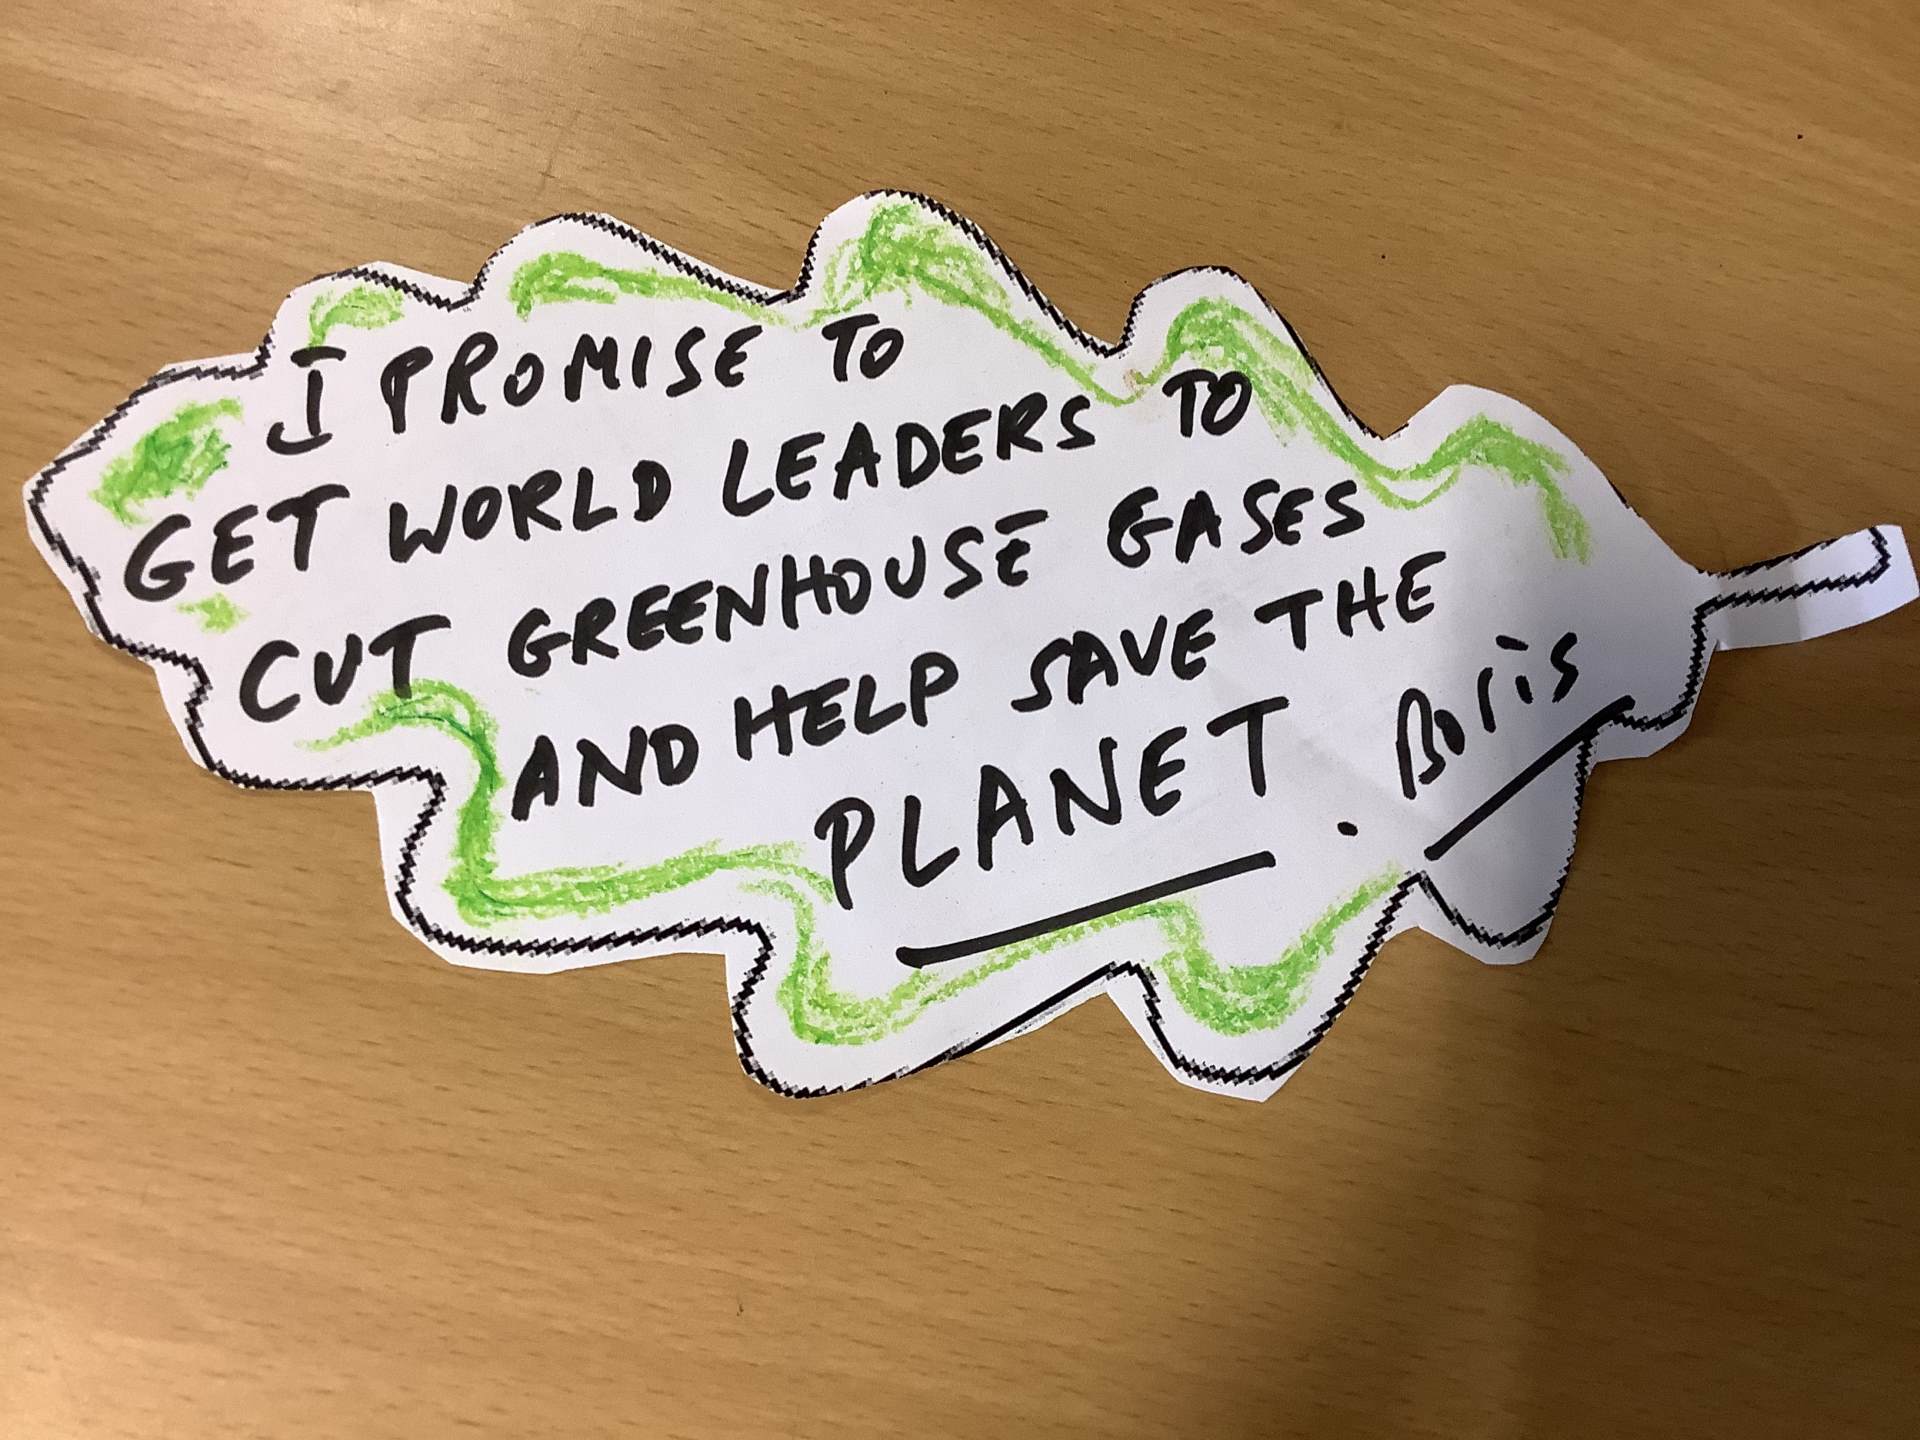 I PROMISE TO
GET WORLD LEADERS TO
CUT GREENHOUSE GASES
AND HELP SAVE THE
PLANET.
Boris